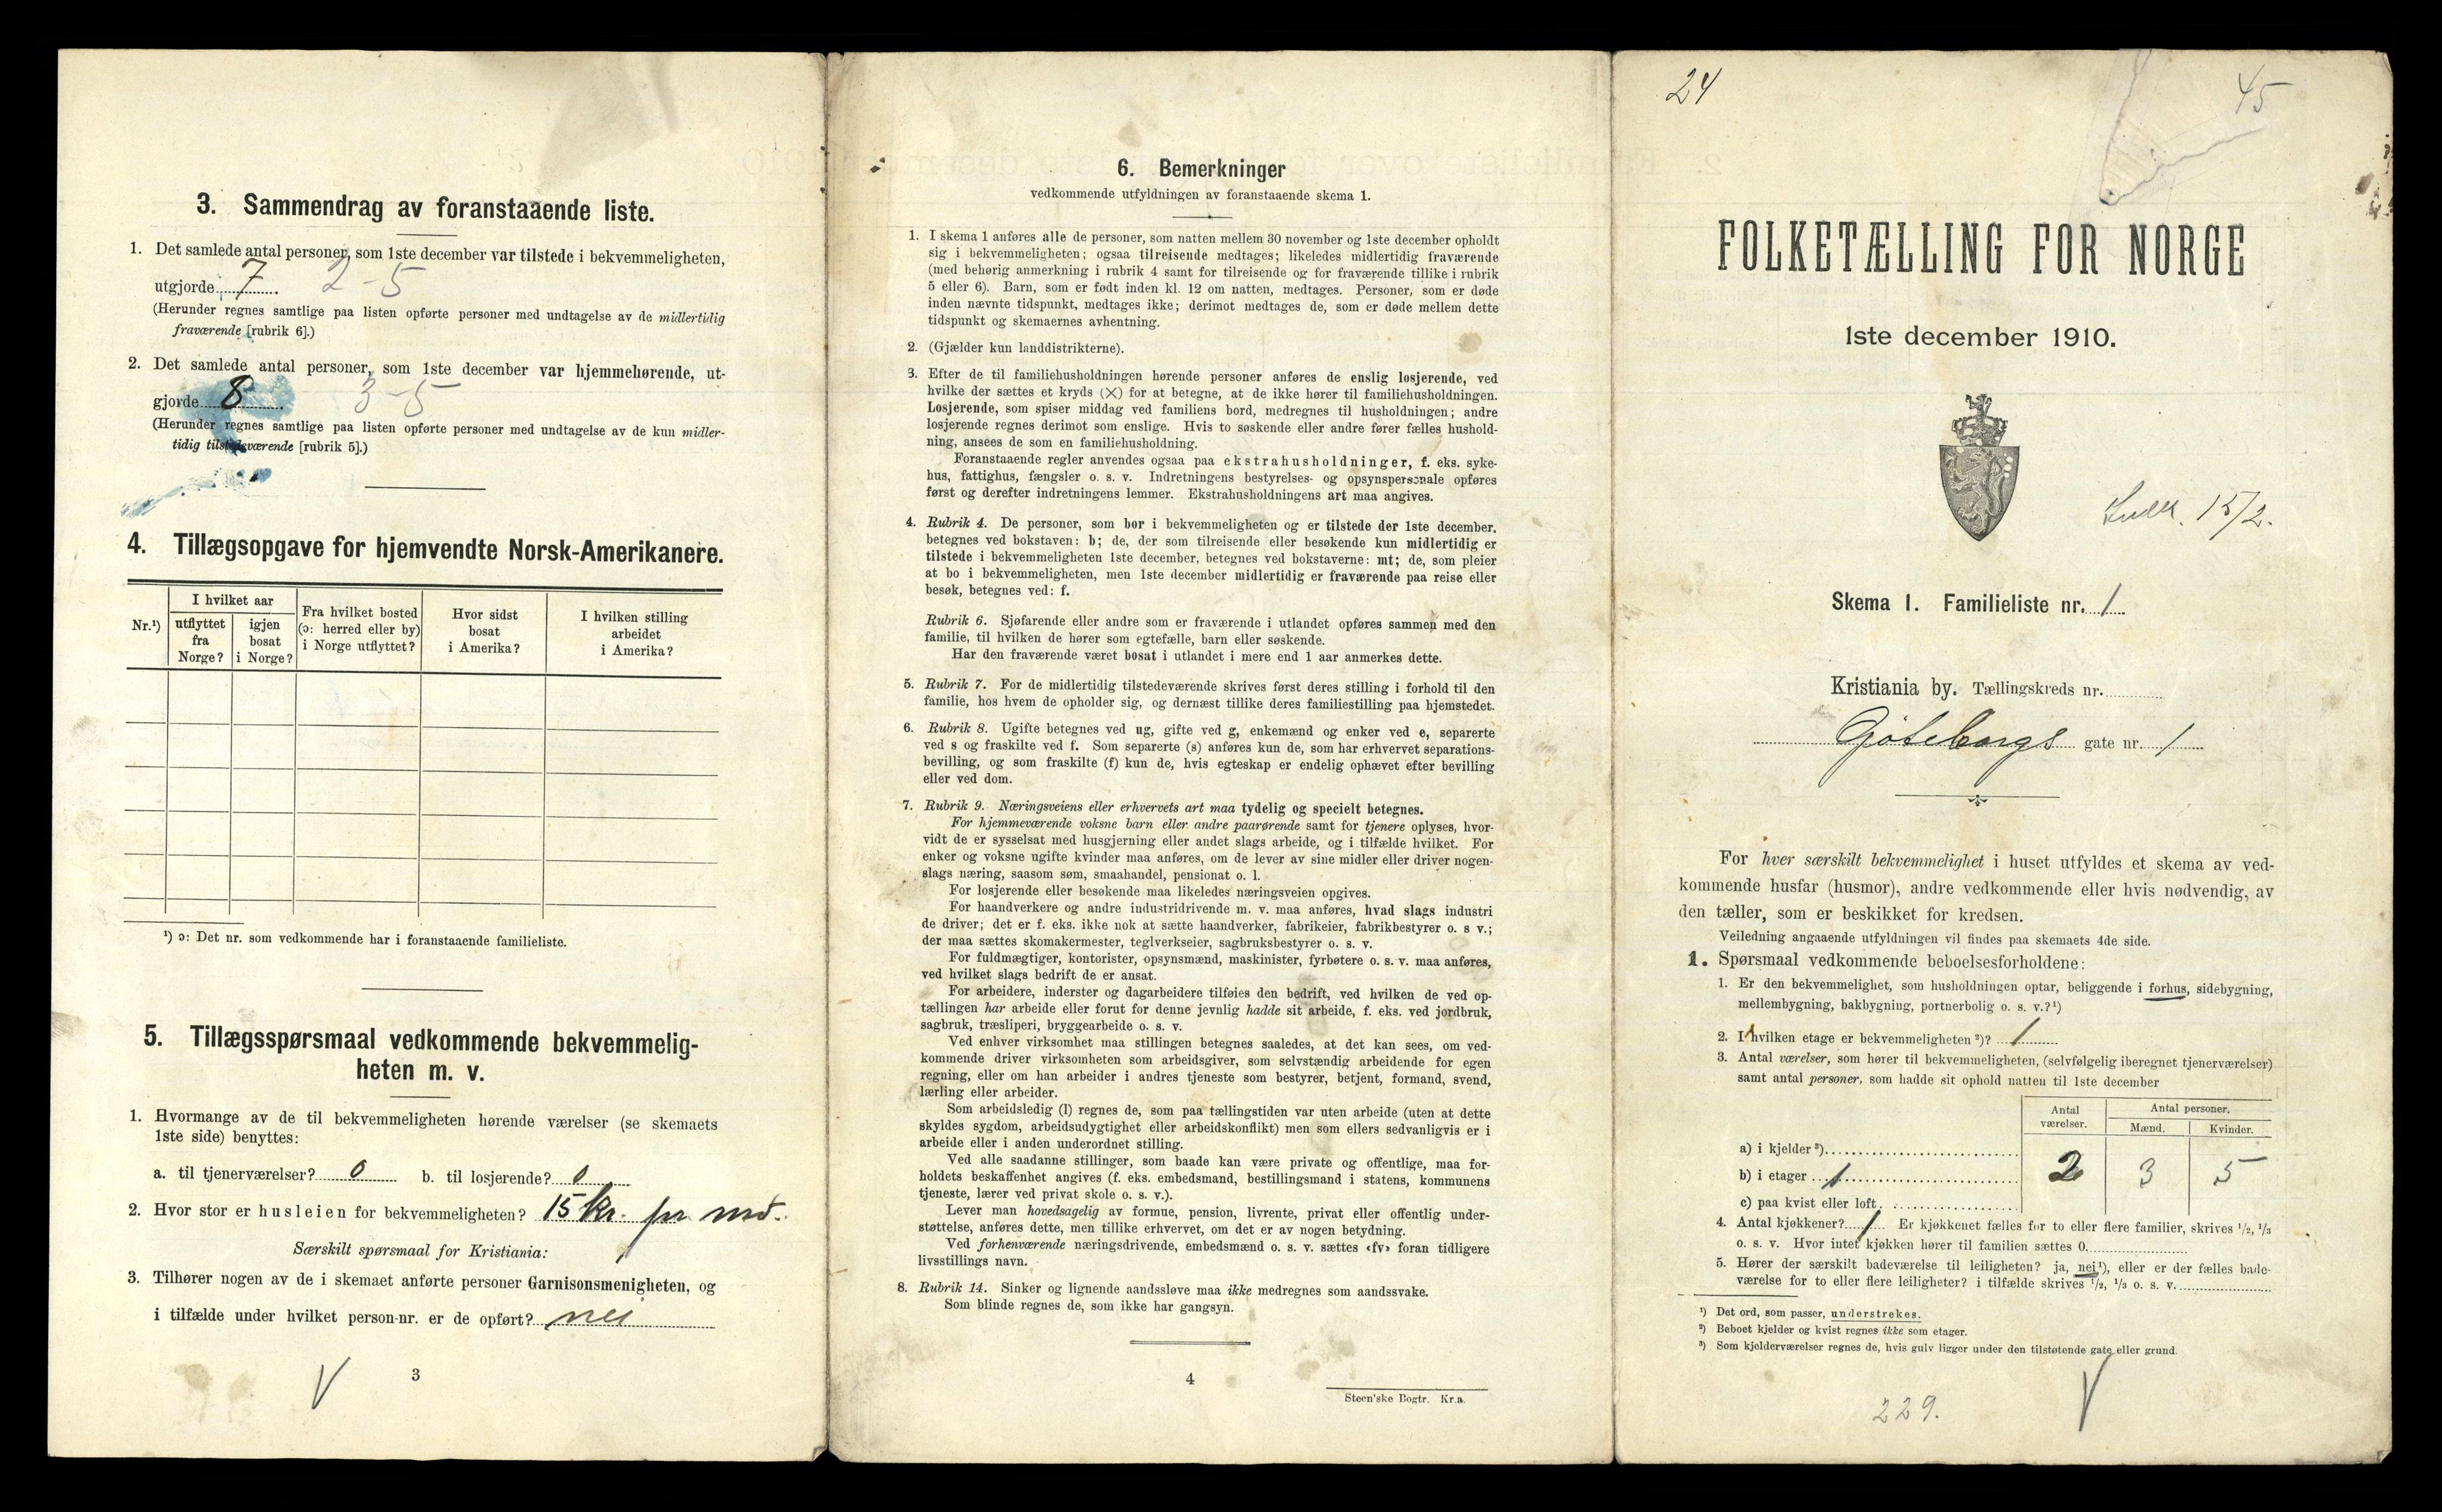 3. Sammendrag av foranstaaende liste.
1. Det samlede antal personer, som 1ste december var tilstede i bekvemmeligheten,
utgjorde 7 2-5
(Herunder regnes samtlige paa listen opførte personer med undtagelse av de midlertidig
fraværende [rubrik 6].)
2. Det samlede antal personer, som 1ste december var hjemmehørende, ut-
gjorde 8 3-5
(Herunder regnes samtlige paa listen opførte personer med undtagelse av de kun midler-
tidig tilstedeværende [rubrik 5].)
4. Tillægsopgave for hjemvendte Norsk-Amerikanere.
Nr.¹)
I hvilket aar
utflyttet
fra
Norge?
igjen
bosat
i Norge?
Fra hvilket bosted
(ɔ: herred eller by)
i Norge utflyttet?
Hvor sidst
bosat
i Amerika?
I hvilken stilling
arbeidet
i Amerika?
¹) ɔ: Det nr. som vedkommende har i foranstaaende familieliste.
5. Tillægsspørsmaal vedkommende bekvemmelig-
heten m. v.
1. Hvormange av de til bekvemmeligheten hørende værelser (se skemaets
1ste side) benyttes:
a. til tjenerværelser? 0 b. til losjerende? 0
2. Hvor stor er husleien for bekvemmeligheten? 15 kr. pr md.
Særskilt spørsmaal for Kristiania:
3. Tilhører nogen av de i skemaet anførte personer Garnisonsmenigheten, og
i tilfælde under hvilket person-nr. er de opført? nei
V
3
6. Bemerkninger
vedkommende utfyldningen av foranstaaende skema 1.
1. I skema 1 anføres alle de personer, som natten mellem 30 november og 1ste december opholdt
sig i bekvemmeligheten; ogsaa tilreisende medtages; likeledes midlertidig fraværende
(med behørig anmerkning i rubrik 4 samt for tilreisende og for fraværende tillike i rubrik
5 eller 6). Barn, som er født inden kl. 12 om natten, medtages. Personer, som er døde
inden nævnte tidspunkt, medtages ikke; derimot medtages de, som er døde mellem dette
tidspunkt og skemaernes avhentning.
2. (Gjælder kun landdistrikterne).
3. Efter de til familiehusholdningen hørende personer anføres de enslig losjerende, ved
hvilke der sættes et kryds (×) for at betegne, at de ikke hører til familiehusholdningen.
Losjerende, som spiser middag ved familiens bord, medregnes til husholdningen; andre
losjerende regnes derimot som enslige. Hvis to søskende eller andre fører fælles hushold-
ning, ansees de som en familiehusholdning.
Foranstaaende regler anvendes ogsaa paa ekstrahusholdninger, f. eks. syke-
hus, fattighus, fængsler o. s. v. Indretningens bestyrelses- og opsynspersonale opføres
først og derefter indretningens lemmer. Ekstrahusholdningens art maa angives.
4. Rubrik 4. De personer, som bor i bekvemmeligheten og er tilstede der 1ste december.
betegnes ved bokstaven: b; de, der som tilreisende eller besøkende kun midlertidig er
tilstede i bekvemmeligheten 1ste december, betegnes ved bokstaverne: mt; de, som pleier
at bo i bekvemmeligheten, men 1ste december midlertidig er fraværende paa reise eller
besøk, betegnes ved: f.
Rubrik 6. Sjøfarende eller andre som er fraværende i utlandet opføres sammen med den
familie, til hvilken de hører som egtefælle, barn eller søskende.
Har den fraværende været bosat i utlandet i mere end 1 aar anmerkes dette.
5. Rubrik 7. For de midlertidig tilstedeværende skrives først deres stilling i forhold til den
familie, hos hvem de opholder sig, og dernæst tillike deres familiestilling paa hjemstedet.
6. Rubrik 8. Ugifte betegnes ved ug, gifte ved g, enkemænd og enker ved e, separerte
ved s og fraskilte ved f. Som separerte (s) anføres kun de, som har erhvervet separations-
bevilling, og som fraskilte (f) kun de, hvis egteskap er endelig ophævet efter bevilling
eller ved dom.
7. Rubrik 9. Næringsveiens eller erhvervets art maa tydelig og specielt betegnes.
For hjemmeværende voksne barn eller andre paarørende samt for tjenere oplyses, hvor-
vidt de er sysselsat med husgjerning eller andet slags arbeide, og i tilfælde hvilket. For
enker og voksne ugifte kvinder maa anføres, om de lever av sine midler eller driver nogen-
slags næring, saasom søm, smaahandel, pensionat o. l.
For losjerende eller besøkende maa likeledes næringsveien opgives.
For haandverkere og andre industridrivende m. v. maa anføres, hvad slags industri
de driver; det er f. eks. ikke nok at sætte haandverker, fabrikeier, fabrikbestyrer o. s v.;
der maa sættes skomakermester, teglverkseier, sagbruksbestyrer o. s. v.
For fuldmægtiger, kontorister, opsynsmænd, maskinister, fyrbøtere o. s. v. maa anføres,
ved hvilket slags bedrift de er ansat.
For arbeidere, inderster og dagarbeidere tilføies den bedrift, ved hvilken de ved op-
tællingen har arbeide eller forut for denne jevnlig hadde sit arbeide, f. eks. ved jordbruk,
sagbruk, træsliperi, bryggearbeide o. s. v.
Ved enhver virksomhet maa stillingen betegnes saaledes, at det kan sees, om ved-
kommende driver virksomheten som arbeidsgiver, som selvstændig arbeidende for egen
regning, eller om han arbeider i andres tjeneste som bestyrer, betjent, formand, svend,
lærling eller arbeider.
Som arbeidsledig (l) regnes de, som paa tællingstiden var uten arbeide (uten at dette
skyldes sygdom, arbeidsudygtighet eller arbeidskonflikt) men som ellers sedvanligvis er i
arbeide eller i anden underordnet stilling.
Ved alle saadanne stillinger, som baade kan være private og offentlige, maa for-
holdets beskaffenhet angives (f. eks. embedsmand, bestillingsmand i statens, kommunens
tjeneste, lærer ved privat skole o. s. v.).
Lever man hovedsagelig av formue, pension, livrente, privat eller offentlig under-
støttelse, anføres dette, men tillike erhvervet, om det er av nogen betydning.
Ved forhenværende næringsdrivende, embedsmænd o. s. v. sættes «fv» foran tidligere
livsstillings navn.
8. Rubrik 14. Sinker og lignende aandssløve maa ikke medregnes som aandssvake.
Som blinde regnes de, som ikke har gangsyn.
4
Steen'ske Bogtr. Kr.a.
24
45
FOLKETÆLLING FOR NORGE
1ste december 1910.
15/2.
Skema 1. Familieliste nr. 1
Kristiania by. Tællingskreds nr.
Gøteborgs gate nr. 1
For hver særskilt bekvemmelighet i huset utfyldes et skema av ved-
kommende husfar (husmor), andre vedkommende eller hvis nødvendig, av
den tæller, som er beskikket for kredsen.
Veiledning angaaende utfyldningen vil findes paa skemaets 4de side.
1. Spørsmaal vedkommende beboelsesforholdene:
1. Er den bekvemmelighet, som husholdningen optar, beliggende i forhus, sidebygning,
mellembygning, bakbygning, portnerbolig o. s. v.?¹)
2. I hvilken etage er bekvemmeligheten ²)? 1
3. Antal værelser, som hører til bekvemmeligheten, (selvfølgelig iberegnet tjenerværelser)
samt antal personer, som hadde sit ophold natten til 1ste december
Antal
værelser.
Antal personer.
Mænd. Kvinder.
a) i kjelder ³)
b) i etager 1 2 3 5
c) paa kvist eller loft
4. Antal kjøkkener? 1 Er kjøkkenet fælles for to eller flere familier, skrives ¹/₂, ¹/₃
o. s. v. Hvor intet kjøkken hører til familien sættes 0.
5. Hører der særskilt badeværelse til leiligheten? ja, nei¹), eller er der fælles bade-
værelse for to eller flere leiligheter? i tilfælde skrives ¹/₂, ¹/₃ o. s. v.
¹) Det ord, som passer, understrekes.
²) Beboet kjelder og kvist regnes ikke som etager.
³) Som kjelderværelser regnes de, hvis gulv ligger under den tilstøtende gate eller grund.
V
229.